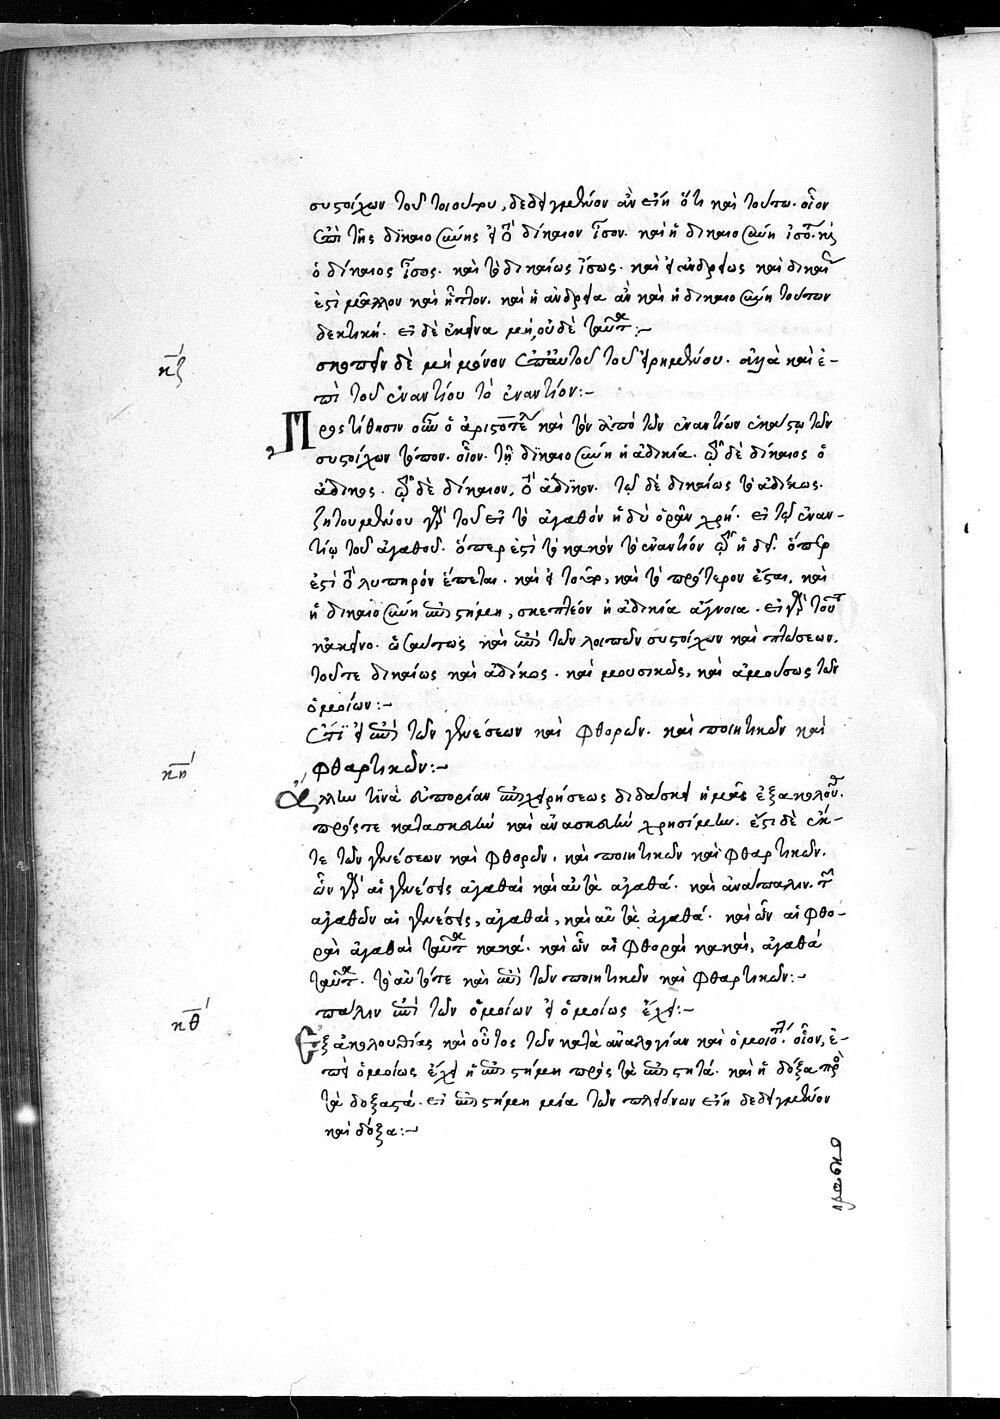 συστοίχων τοῦ τοιούτου, δεδειγμένον ἂν εἴη ὅτι καὶ τοῦτο. οἷον
ἐπὶ τῆς δικαιοσύνης εἰ τὸ δίκαιον ἴσον. καὶ ἡ δικαιοσύνη ἰσότης
ὁ δίκαιος ἴσος. καὶ τὸ δικαίως ἴσως. καὶ εἰ ἀνδρείως καὶ δικαί
ἐστὶ μᾶλλον καὶ ἧττον. καὶ ἡ ἀνδρεία ἂν καὶ ἡ δικαιοσύνη τούτων
δεκτική. εἰ δὲ ἐκεῖνα μή, οὐδὲ ταῦτα:~
κζ´
σκοπεῖν δὲ μὴ μόνον ἐπ' αὐτοῦ τοῦ εἰρημένου. ἀλλὰ καὶ ἐ-
πὶ τοῦ ἐναντίου τὸ ἐναντίον:~
Προστίθησιν οὖν ὁ ἀριστοτέλης καὶ τὸν ἀπὸ τῶν ἐναντίων ἑκάστῳ τῶν
συστοίχων τόπον. οἷον. τῇ δικαιοσύνῃ ἡ ἀδικία. τῷ δὲ δίκαιος ὁ
ἄδικος. τῷ δὲ δίκαιον, τὸ ἄδικον. τῷ δὲ δικαίως τὸ ἀδίκως.
ζητουμένου γὰρ τοῦ εἰ τὸ ἀγαθὸν ἡδὺ ὁρᾶν χρή. εἰ τῷ ἐναν-
τίῳ τοῦ ἀγαθοῦ. ὅπερ ἐστὶ τὸ κακὸν τὸ ἐναντίον τῷ ἡδεῖ. ὅπερ
ἐστὶ τὸ λυπηρὸν ἕπεται. καὶ εἰ τοῦτο, καὶ τὸ πρότερον ἔσται. καὶ
ἡ δικαιοσύνη ἐπιστήμη, σκεπτέον ἡ ἀδικία ἄγνοια. εἰ γὰρ τοῦτο
κἀκεῖνο. ὡσαύτως καὶ ἐπὶ τῶν λοιπῶν συστοίχων καὶ πτώσεων.
τοῦ τε δικαίως καὶ ἀδίκως. καὶ μουσικῶς, καὶ ἀμούσως τῶν
ὁμοίων:~
κη´
ἔτι εἰ ἐπὶ τῶν γενέσεων καὶ φθορῶν. καὶ ποιητικῶν καὶ
φθαρτικῶν:~
Ἄλλην τινὰ εὐπορίαν ἐπιχειρήσεως διδάσκει ἡμᾶς ἐξακολουθ.
πρός τε κατασκευὴν καὶ ἀνασκευὴν χρησίμην. ἔστι δὲ ἐκ-
τε τῶν γενέσεων καὶ φθορῶν. καὶ ποιητικῶν καὶ φθαρτικῶν.
ὧν γὰρ αἱ γενέσεις ἀγαθαὶ καὶ αὐτὰ ἀγαθά. καὶ ἀνάπαλιν. τῶν
ἀγαθῶν αἱ γενέσεις, ἀγαθαί, καὶ αὐτὰ ἀγαθά. καὶ ὧν αἱ φθο-
ραὶ ἀγαθαὶ ταῦτα κακά. καὶ ὧν αἱ φθοραὶ κακαί, ἀγαθά
ταῦτα. τὸ αὐτό τε καὶ ἐπὶ τῶν ποιητικῶν καὶ φθαρτικῶν:~
κθ´
πάλιν ἐπὶ τῶν ὁμοίων εἰ ὁμοίως ἔχει:~
Ἐξ ἀκολουθίας καὶ οὗτος τῶν κατὰ ἀναλογίαν καὶ ὁμοιότητ. οἷον, ἐ-
πεὶ ὁμοίως ἔχει ἡ ἐπιστήμη πρὸς τὰ ἐπιστητά. καὶ ἡ δόξα πρὸς
τὰ δοξαστά. εἰ ἐπιστήμη μία τῶν πλειόνων εἴη δεδειγμένον
καὶ δόξα:~